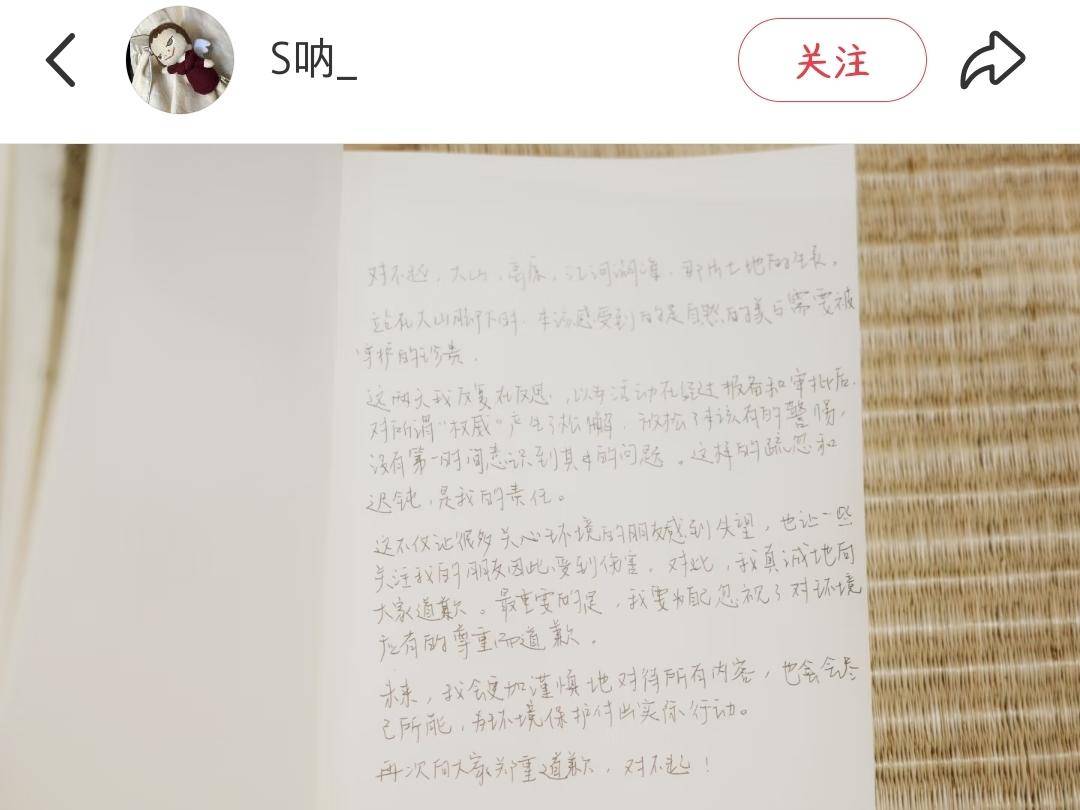 S呐_
关注
对不起，大山，高原，江河湖海，那片土地的生长。
站在大山脚下时，本该感受到的是自然的美与需要被
守护的珍贵。
这两天我反复在反思，以为活动在经过报备和审批后，
对所谓“权威”产生了松懈，放松了本该有的警惕，
没有第一时间意识到其中的问题。这样的疏忽和
迟钝，是我的责任。
这不仅让很多关心环境的朋友感到失望，也让一些
关注我的朋友因此受到伤害。对此，我真诚地向
大家道歉。最重要的是，我要为自己忽视了对环境
应有的尊重而道歉。
未来，我会更加谨慎地对待所有内容，也会会尽
己所能，为环境保护付出实际行动。
再次向大家郑重道歉，对不起！